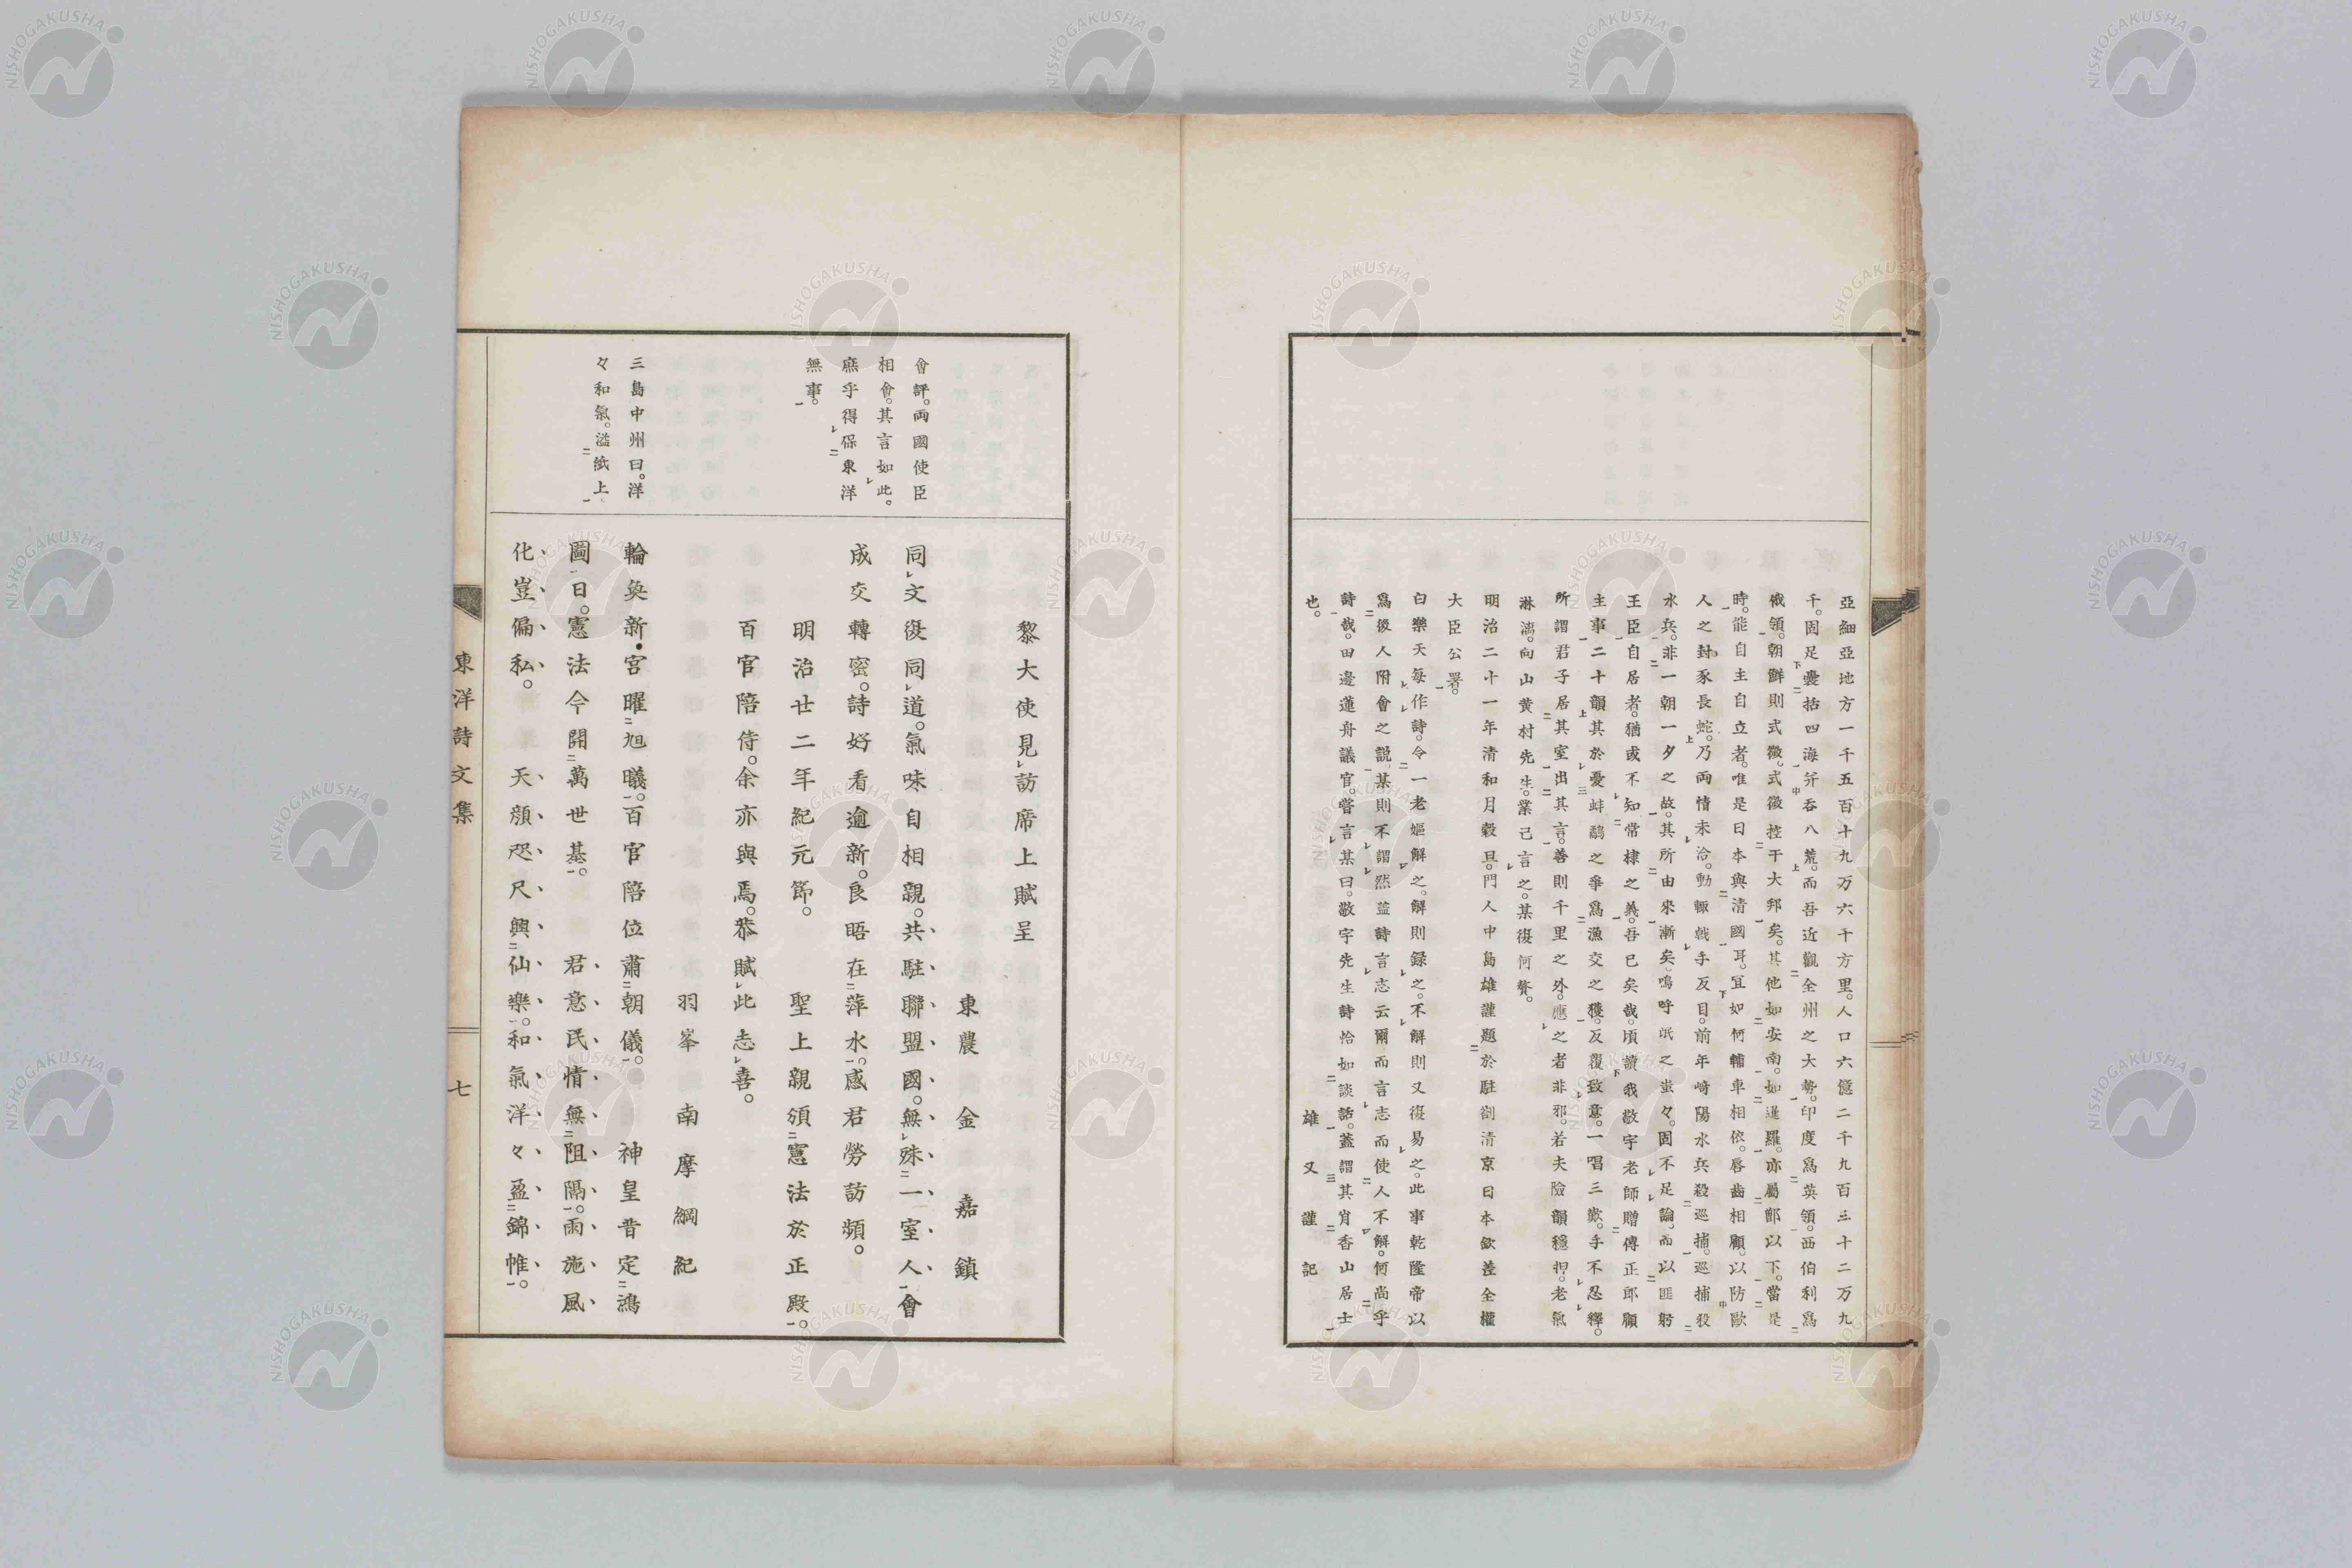 亞細亞地方一千五百十九万六千方里。人口六億二千九百三十二万九
千。固足囊括四海并吞八荒。而吾近觀全州之大勢。印度爲英領。西伯利爲
俄領。朝鮮則式微。式微控于大邦矣。其他如安南。如暹羅。亦屬鄶以下。當是
時。能自主自立者。唯是日本與清國耳。冝如何輔車相依。唇齒相顧。以防歐
人之封豕長蛇。乃両情未洽。動輙戟手反目。前年崎陽水兵殺巡捕。巡捕殺
水兵。非一朝一夕之故。其所由來漸矣。嗚呼氓之蚩々。固不足論。而以匪躬
王臣自居者。猶或不知常棣之義。吾已矣哉。頃讀我敬宇老師贈傅正郎顧
主事二十韻其於憂蚌鷸之爭爲漁交之獲。反覆致意。一唱三歎。手不忍釋。
所謂君子居其室出其言。善則千里之外。應之者非邪。若夫險韻穩押。老氣
淋漓。向山黄村先生。業已言之。某復何贅。
明治二十一年清和月穀旦。門人中島雄謹題於駐劄清京日本欽差全權
大臣公署。
白樂天毎作詩。令一老嫗解之。解則録之。不解則又復易之。此事乾隆帝以
爲後人附會之説。某則不謂然。蓋詩言志云爾而言志而使人不解。何尚乎
詩哉。田邊蓮舟議官。嘗言某曰。敬宇先生詩恰如談話。蓋謂其肖香山居士
也。
雄又謹記
會評。両國使臣
相會。其言如此。
庶乎得保東洋
無事。
三島中州曰。洋
々和氣。溢紙上
黎大使見訪席上賦呈
東農金嘉鎮
同文復同道。氣味自相親。共駐聯盟國。無殊一室人。會
成交轉密。詩好看逾新。良晤在萍水。感君勞訪頻。
明治廿二年紀元節。聖上親頒憲法於正殿。
百官陪侍。余亦與焉。恭賦此志喜。
羽峯南摩綱紀
輪奐新宮曜旭曦。百官陪位肅朝儀。神皇昔定鴻
圖日。憲法今開萬世基。君意民情無阻隔。雨施風
化豈偏私。天顔咫尺興仙樂。和氣洋々盈錦帷。
東洋詩文集
七
NISHOGAKUSHA